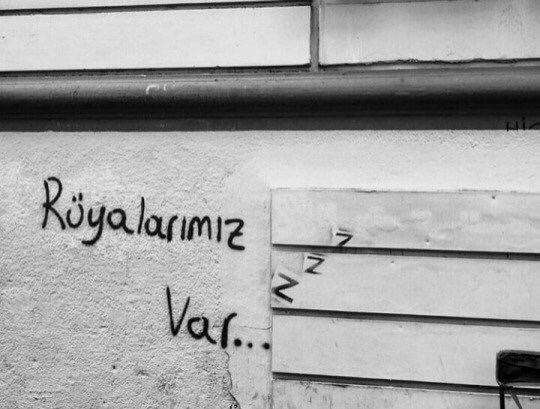 Rüyalarımız
Var...
z
z
z